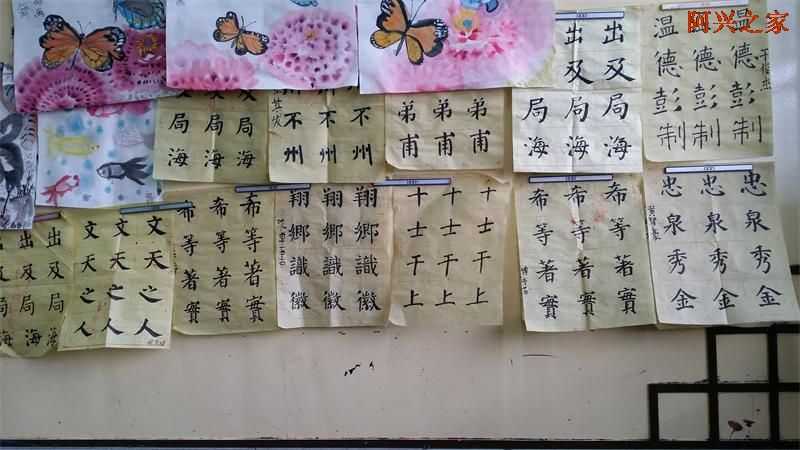 阿兴之家
局海
局海
局海
不州
不州
不州
弟甫
弟甫
弟甫
局海
出及局海
出及局海
温德彭制
德彭制
温德彭制
出及局海
出及局海
文天之人
文天之人
文天之人
希等著實
希等著實
希等著實
翔鄉識徽
翔鄉識徽
翔鄉識徽
十士干上
十士干上
十士干上
希等著實
希等著實
希等著實
忠泉秀金
忠泉秀金
忠泉秀金